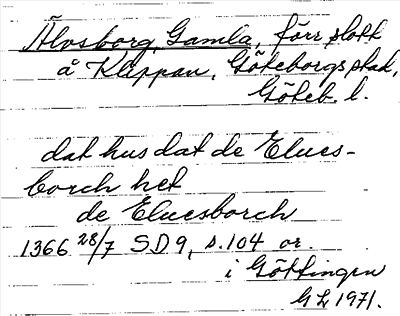 Älvsborg, Gamla, förr slott
å Klippan, Göteborgs stad,
Göteb. l.
dat hus dat de Elues-
borch het
de Eluesborch
1366 28/7 SD 9, s. 104 or.
i Göttingen
GL 1971.